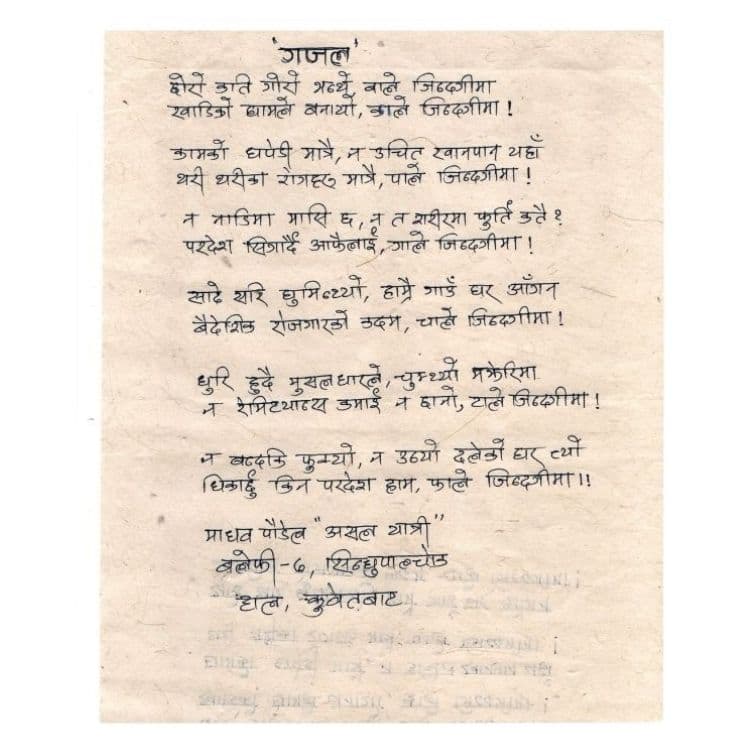 'गजल'
छोरो कति गोरो भन्थे, बाले जिन्दगीमा
खाडिको घामले बनायो, कालो जिन्दगीमा!
कामको धपेडी मात्रै, न उचित खानपान यहाँ
थरी थरीका रोगहरु मात्रै, पाले जिन्दगीमा!
न नाडिमा मासि छ, न त शरीरमा फुर्ति कतै?
परदेश सिंगार्दै आफैलाई, गाले जिन्दगीमा!
साढे सरि घुमिन्थ्यो, हाम्रै गाउँ घर आँगन
बैदेशिक रोजगारको कदम, चाले जिन्दगीमा!
धुरि हुदै मुसलधारले, चुम्थ्यो मझेरिमा
न रेमिट्यान्स कमाई न छानो, टाले जिन्दगीमा!
न बन्दकि फुक्यो, न उठ्यो ढलेको घर त्यो
धिकार्छु किन परदेश हाम, फाले जिन्दगीमा।।
माधव पौडेल "असल यात्री"
बलेफी-७, सिन्धुपाल्चोक
हाल, कुवेतबाट